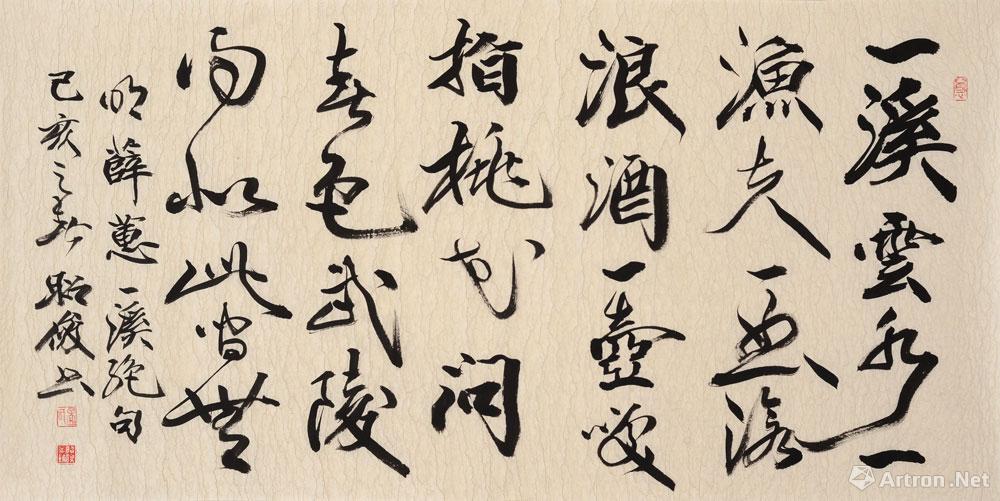 一溪雲水一
漁夫一曲滄
浪酒一壺笑
指桃花問
春色武陵
似此間無
明薛蕙一溪絕句
己亥之春昭俊书
Artron.Net